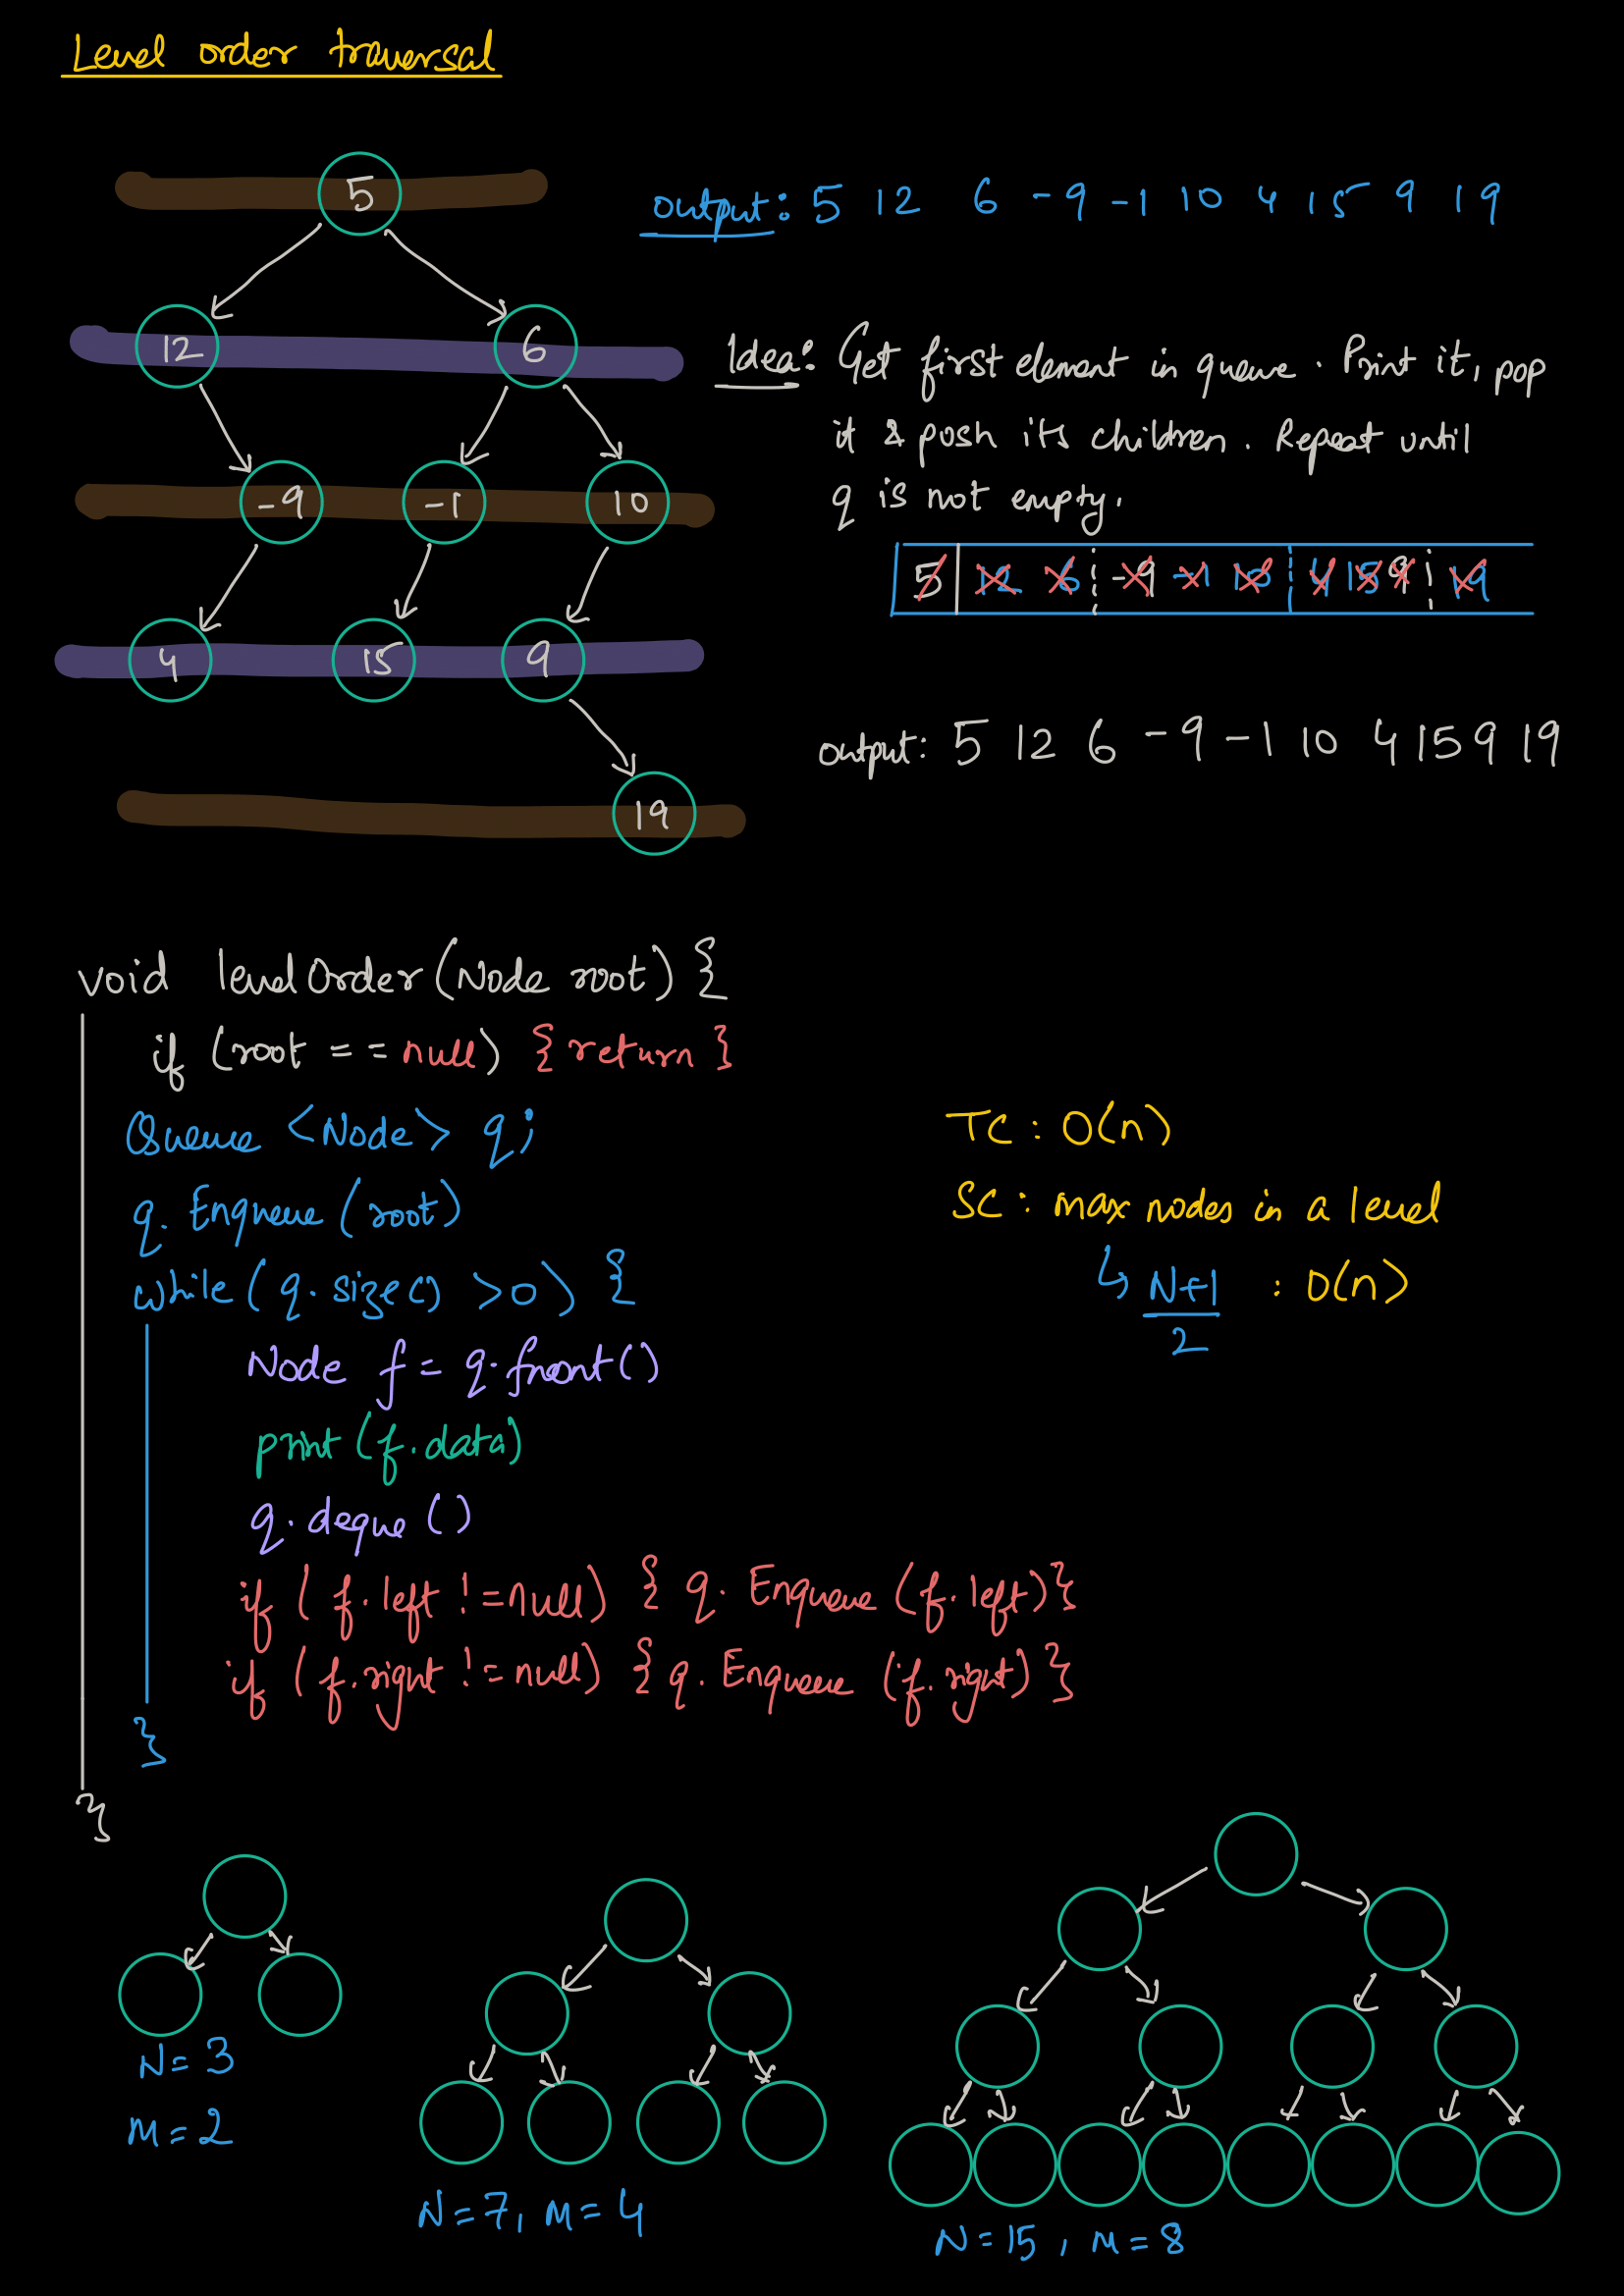 Level order traversal
5
output: 5 12 6 -9 -1 10 4 15 9 19
12 6
Idea: Get first element in queue. Print it, pop
it & push its children. Repeat until
q is not empty.
-9 -1 10
5 12 6 -9 -1 10 4 15 9 19
4 15 9
output: 5 12 6 -9 -1 10 4 15 9 19
19
void levelOrder(Node root) {
if (root == null) { return }
Queue <Node> q;
q. Enqueue (root)
while( q.size() >0 ) {
Node f = q.front()
print (f.data)
q.deque ()
if ( f.left != null) { q. Enqueue (f.left)}
if ( f.right != null) { q. Enqueue (f.right) }
}
}
TC : O(n)
SC : max nodes in a level
↳ N+1 : O(n)
2
N= 3
M= 2
N=7, M= 4
N=15 , M=8